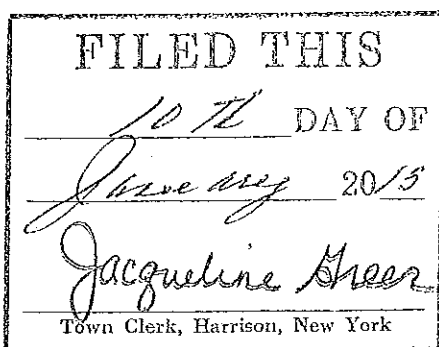 FILED THIS
10 Th DAY OF
January 2015
Jacqueline Greer
Town Clerk, Harrison, New York